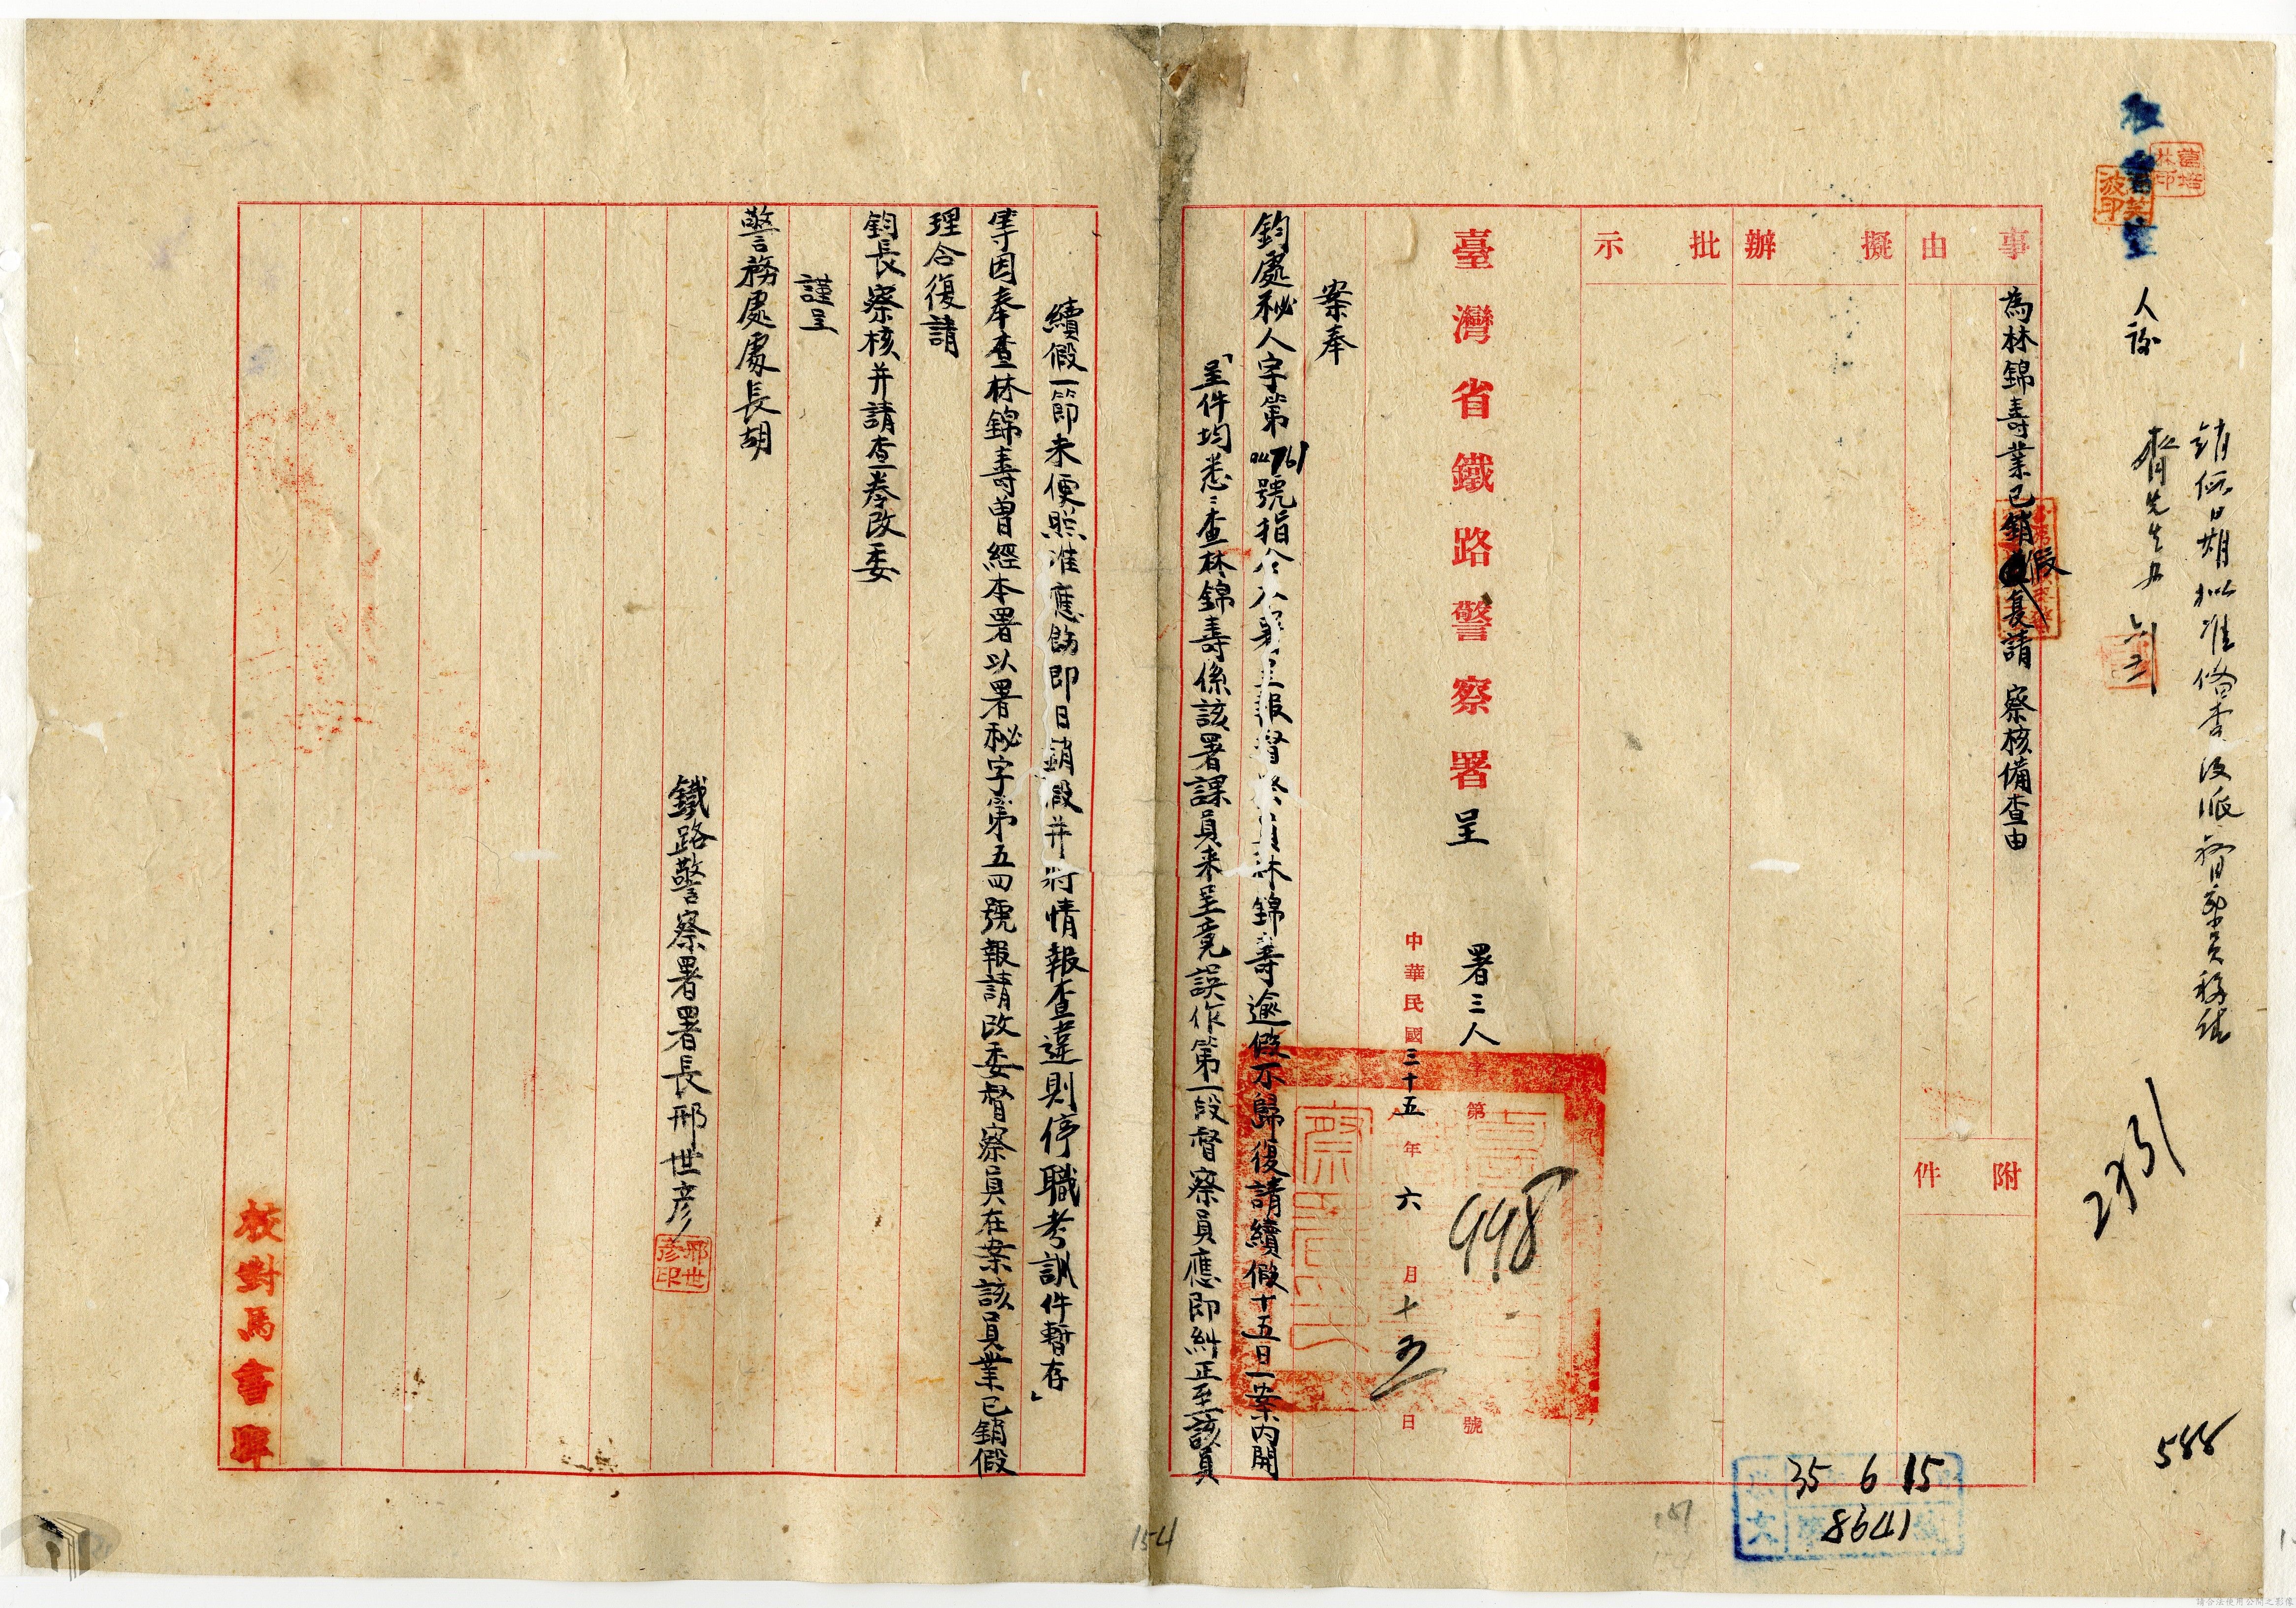 人
銷假日期擬准備查
588
事由
為林錦壽業已銷假復請 察核備查由
附件
擬辦
批示
臺灣省鐵路警察署 呈
署三人字第998號
中華民國三十五年六月十五日
案奉
鈞處秘人字第號指令本署呈報督察員林錦壽逾假不歸復請續假十五日一案內開
「呈件均悉:查林錦壽係該署課員來呈竟誤作第一段督察員應即糾正至該員
續假一節未便照准應飭即日銷假并將情報查違則停職考訓件暫存」
等因奉查林錦壽曾經本署以署秘字第五四號報請改委督察員在案該員業已銷假
理合復請
鈞長察核并請查卷改委
謹呈
警務處處長胡
鐵路警察署署長邢世彥
邢世彥印
校對馬書
35 6 15
8641
154